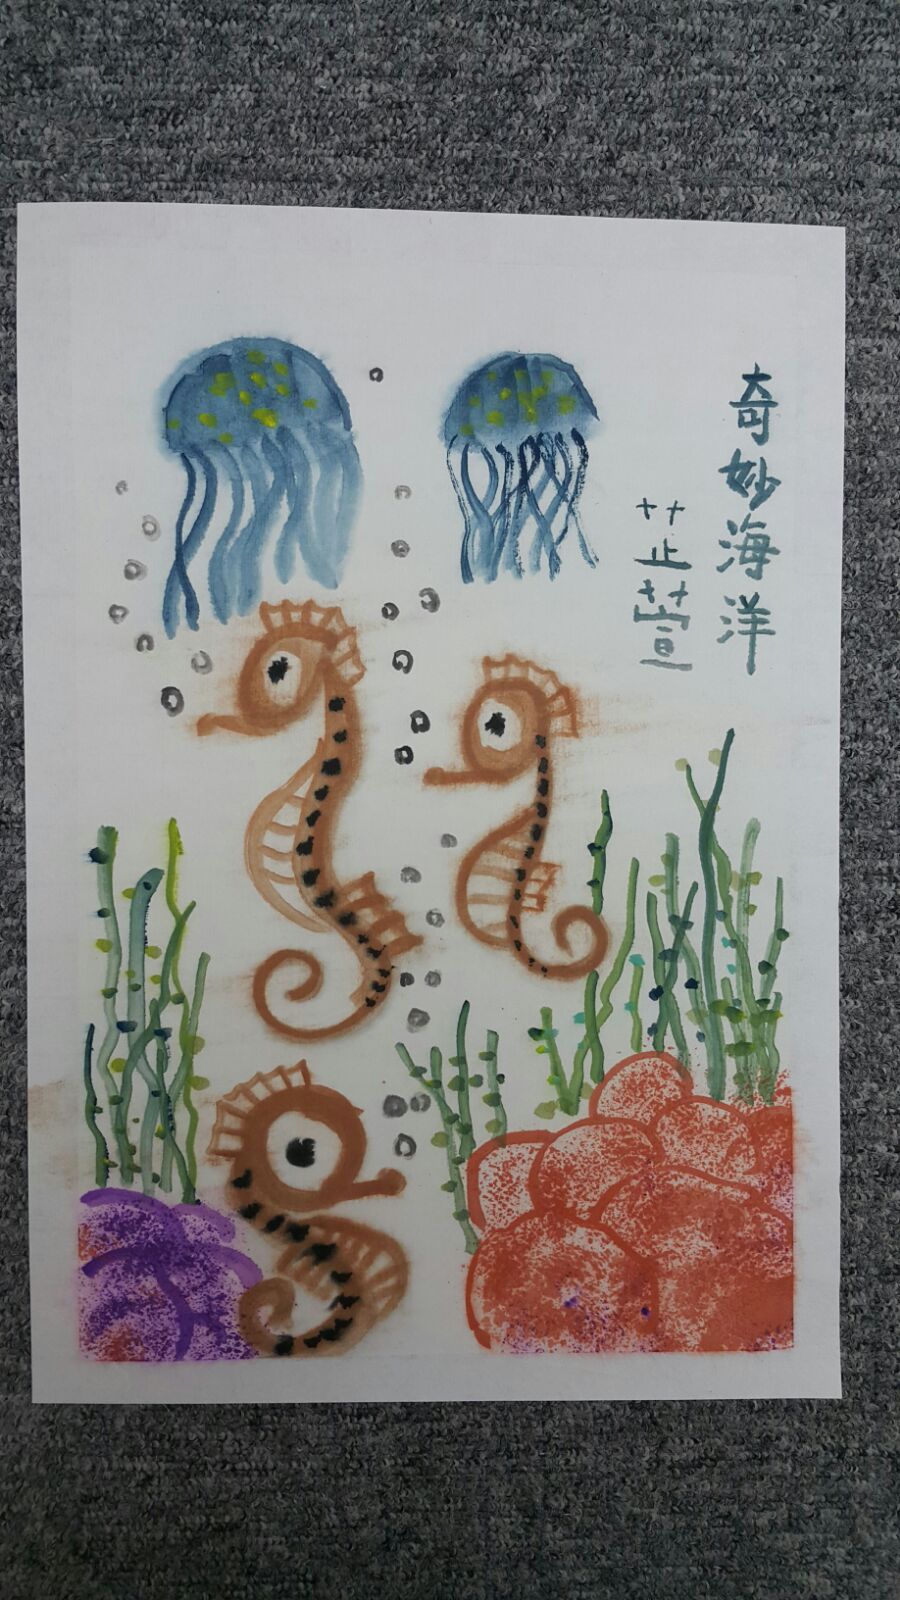 奇妙海洋
芷萱